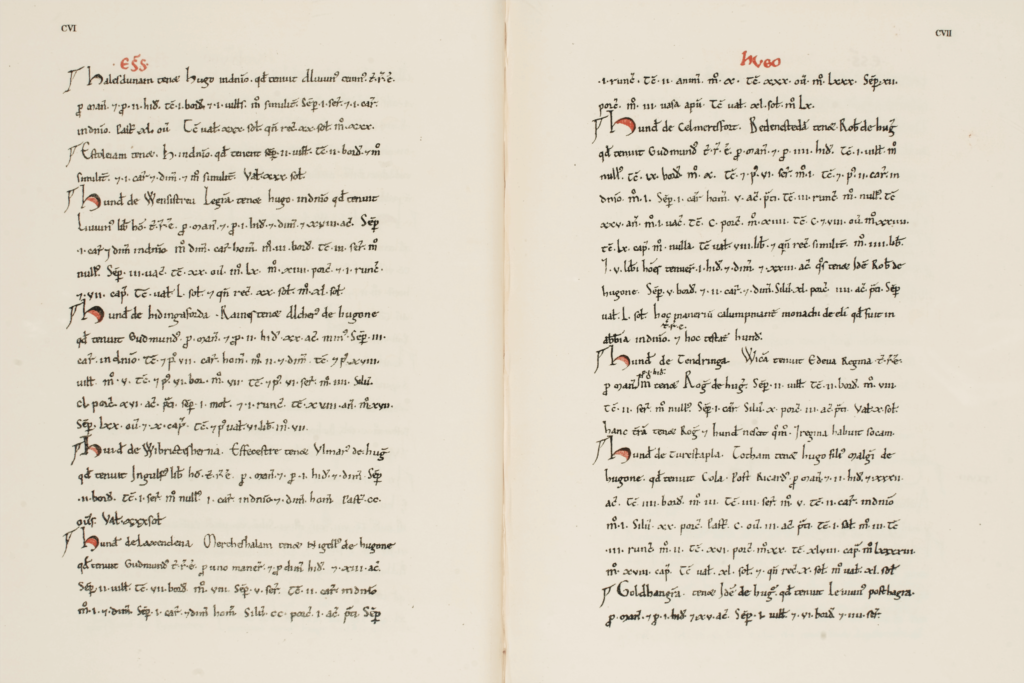 CVI
ESS.
Halesdunam tenet hugo indnio. qđ tenuit
p man̄. 7 p. ii. hiđ. Tc̄. i. borđ. 7. i. uilts. m̊ similit̄. Sēp. i. ser̄. 7. i. car̄.
indnio. Past̄. xl. oū. Tc̄ uat̄. xxx. sot̄. qn̄ rec̄. xx. sot̄. m̊. xxx.
similit̄. 7. i. car̄. 7 dim̄. 7 m̊ similit̄. Vat̄. xxx. sot̄.
hund̄ de Wensistreu. Legrā. tenet hugo. indnio qđ tenuit
Leuuin̄ lib̄ hō. t̄. r̄. ē. p. man̄. 7. p. i. hiđ. 7 dim̄. 7 xxxviii. ac̄. Sēp
. i. car̄ 7 dim̄ indnio m̊ dim̄. car̄. hom̄. m̊. iii. borđ. Tc̄. iii. ser̄. m̊
null̄. Sēp. iii. uac̄. Tc̄. xx. oū. m̊. lx. m̊. xiiii. porc̄. 7. i. runc̄.
7. vii. cap̄. Tc̄. uat̄ L. sot̄ 7 qn̄ rec̄. xx. sot̄. m̊. xl. sot̄.
hund̄ de hidingaforda. Raines tenet de hugone
qđ tenuit Gudmund̄. p. man̄. 7. p. ii. hiđ. xx. ac̄. min̄. Sēp. iii.
car̄. indnio. Tc̄. 7 p̊. vii. car̄. hom̄. m̊. ii. 7. dim̄. Tc̄. 7 p̊. xviii.
uilt̄. m̊. v. Tc̄. 7 p̊. vi. bor. m̊. vii. Tc̄. 7 p̊. vi. ser̄. m̊. iii. Silū.
cl porc̄. xvi. ac̄. p̄ti. sēp. i. mol̄. 7. i. runc̄. Tc̄. xviii. an̄. m̊ xvii.
Sēp. lxx. oū. 7. x. cap̄. Tc̄. 7 p̊ uat̄. vi. lib̄. m̊. vii.
hund̄ de Wibrictesherna. Effecestre tenet Vlmar̄ de huḡ
qđ tenuit Ingulf̄ lib̄ hō. t̄. r̄. ē. p. man̄. 7. p. i. hiđ. 7 dim̄. Sēp
. ii. borđ. Tc̄. i. ser̄ m̊ null̄. i. car̄ indnio. 7. dim̄. hom̄. Past̄. cc.
ouīs. Vat̄. xxx sot̄
hund̄ de Laxendena Mercheshalam tenet Nigell̄ de hugone
qđ tenuit Gudmund̄ t̄. r̄. ē. p uno maner̄. 7 p dim̄ hiđ. 7. xiii. ac̄.
Sēp. ii. uilt̄. Tc̄. vii. borđ. m̊. viii. Sēp. v. ser̄. Tc̄. ii. car̄. indnio
m̊. i. 7. dim̄. Sēp. i. car̄. 7 dim̄ hom̄. Silū. cc. porc̄. i. ac̄. p̄ti. Sēp
CVII
HUGO
. i. runc̄. Tc̄. ii. m̊. x. Tc̄. xxx. oū. m̊. lxxx. Sēp. xii.
porc̄. m̊. iii. uasa apū. Tc̄ uat̄. xl. sot̄. m̊ Lx.
hund̄ de Celmeresfort. Bedenestedā tenet Rob̄ de huḡ
qđ tenuit Gudmund̄ t̄. r̄. ē. p. man̄. 7 p. iiii. hiđ. Tc̄. i. uilt̄. m̊
null̄. Tc̄. ix. borđ. m̊. x. Tc̄. 7 p̊. vi. ser̄. m̊. i. Tc̄. 7. p̊. ii. car̄. in
dnio. m̊. i. Sēp. i. car̄ hom̄. v. ac̄. p̄ti. Tc̄. iii. runc̄. m̊. null̄. Tc̄
xxv. an̄. m̊. i. uac̄. Tc̄. c. porc̄. m̊. xiiii. Tc̄. c. 7. viii. oū. m̊.
Tc̄. Lx. cap̄. m̊. nulla. Tc̄ uat̄. viii. lib̄. 7 qn̄ rec̄ similit̄. m̊. iiii. lib̄.
I. v. lib̄i hōes tenuer̄. i. hiđ. 7 dim̄. 7 xxiii. ac̄. qs̄ tenet idē Rob̄ de
hugone. Sēp. v. borđ. 7. ii. car̄. 7 dim̄. Silū. xl. porc̄. iii. ac̄ p̄ti. Sēp
uat̄. L. sot̄. hoc maneriū calumpniant̄ monachi de eli qđ fuit in
abb̄ia indnio. t. r. e. 7 hoc testat̄ hund̄.
hund̄ de Tendringa. Wicā tenuit Edeua Regina t̄. r̄. ē.
p man̄ tenet Roḡ de huḡ. Sēp. ii. uilt̄. Tc̄. ii. borđ. m̊. viii.
Tc̄. ii. ser̄. m̊ null̄. Sēp. i. car̄. Silū. x. porc̄. iii. ac̄ p̄ti. Vat̄. x. sot̄.
hanc t̄rā tenet Roḡ 7 hund̄ nescit qm̊. I regina habuit socam.
hund̄ de Turestapla. Tocham tenet hugo fili̊ malgi de
hugone. qđ tenuit Cola. Post Ricard̄. p man̄. 7. ii. hiđ. 7
ac̄. Tc̄. iiii. borđ. m̊. iii. Tc̄. iiii. ser̄. m̊. v. Tc̄. ii. car̄. indnio
m̊. i. Silū. xx. porc̄. Past̄. c. oū. iii. ac̄. p̄ti. Tc̄. i. sal̄. m̊. iii. Tc̄
. iii. runc̄. m̊. ii. Tc̄. xvi. porc̄. m̊. xx. Tc̄. xlviii. cap̄.
m̊. xviii. cap̄. Tc̄ uat̄. xl. sot̄. 7 qn̄ rec̄. x. sot̄. m̊ uat̄. xl. sot̄
Goldhangrā. tenet Idē. de huḡ. qđ tenuit Leuuin̄ posthagra.
p. man̄. 7 p. i. hiđ. 7 xv. ac̄. Sēp. i. uilt̄ 7 vi. borđ 7 iiii. ser̄.